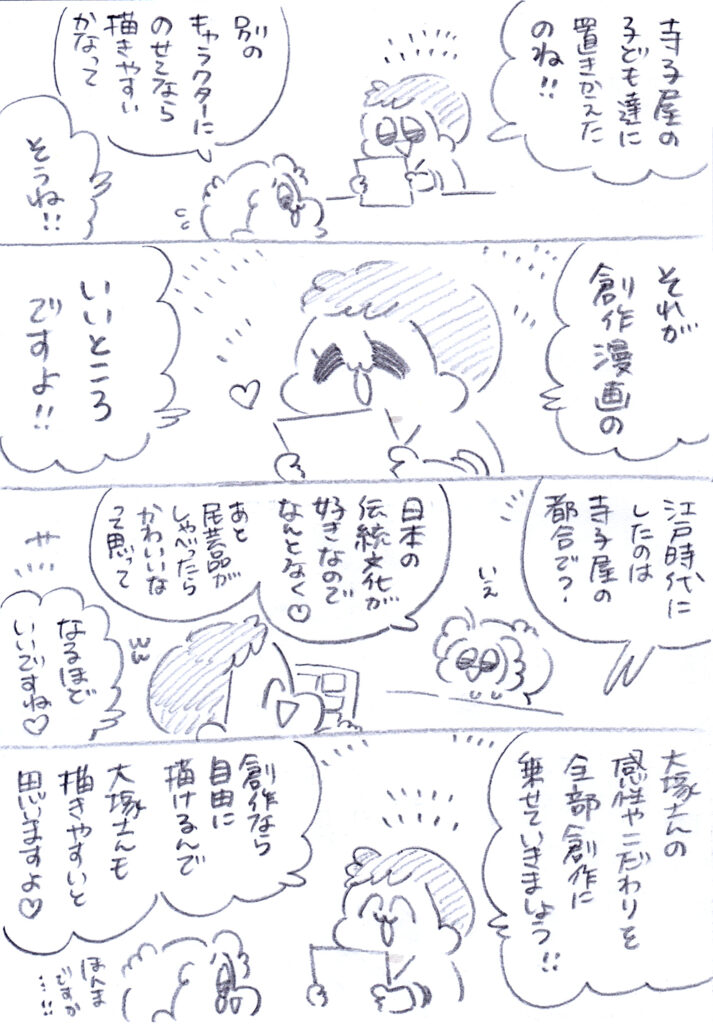 寺子屋の
子ども達に
置きかえた
のね!!
別の
キャラクターに
のせてなら
描きやすい
かなって
そうね!!
それが
創作漫画の
いいところ
ですよ!!
江戸時代に
したのは
寺子屋の
都合で?
いえ
日本の
伝統文化が
好きなので
なんとなく♡
あと
民芸品が
しゃべったら
かわいいな
って思って
なるほど
いいですね♡
大塚さんの
感性やこだわりを
全部創作に
乗せていきましょう!!
創作なら
自由に
描けるんで
大塚さんも
描きやすいと
思いますよ♡
ほんま
ですか
…!!